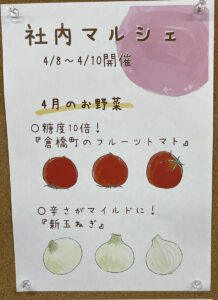 社内マルシェ
4/8～4/10開催
4月のお野菜
○糖度10倍！
『倉橋町のフルーツトマト』
○辛さがマイルドに！
『新玉ねぎ』